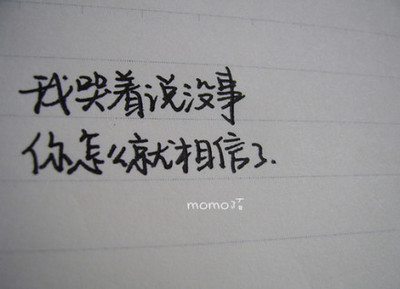 我哭着说没事
你怎么就相信了.
momo